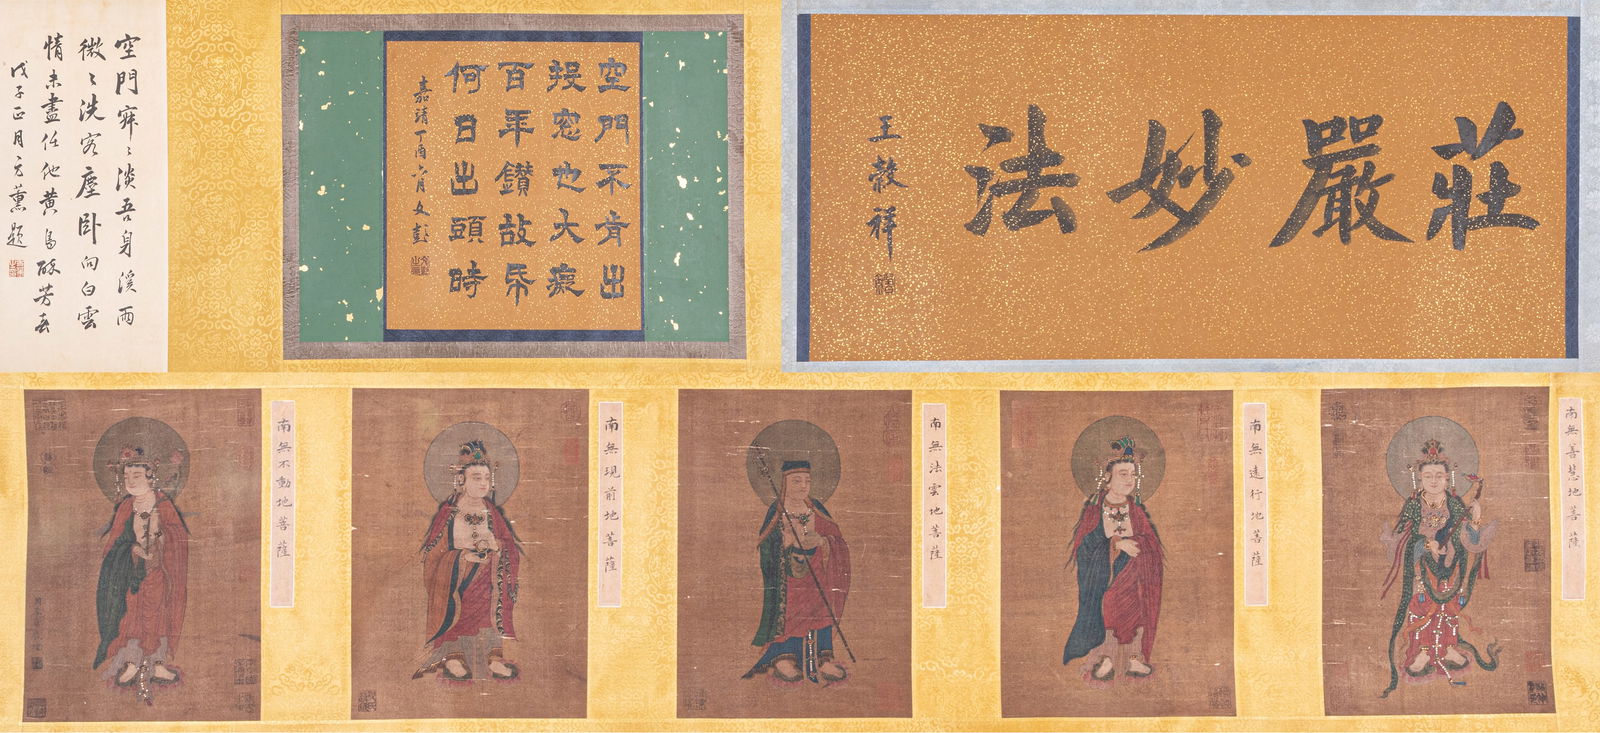 莊嚴妙法
王穀祥
空門不肯出
投窓也大癡
百年鑽故帋
何日出頭時
嘉靖丁酉六月文彭
空門寂〻淡吾身溪雨
微〻洗客塵卧向白雲
情未盡任他黄鳥醉芳春
戊子正月方薰題
南無善慧地菩薩
南無遠行地菩薩
南無法雲地菩薩
南無現前地菩薩
南無不動地菩薩